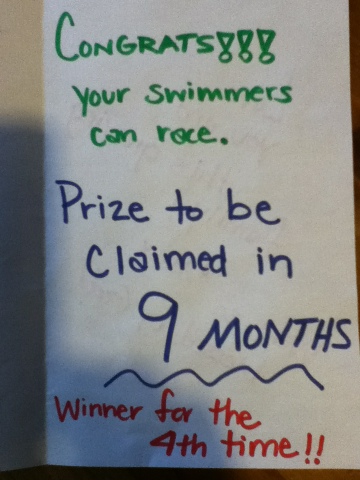 CONGRATS!!!
your swimmers
can race.
Prize to be
Claimed in
9 MONTHS
Winner for the
4th time!!